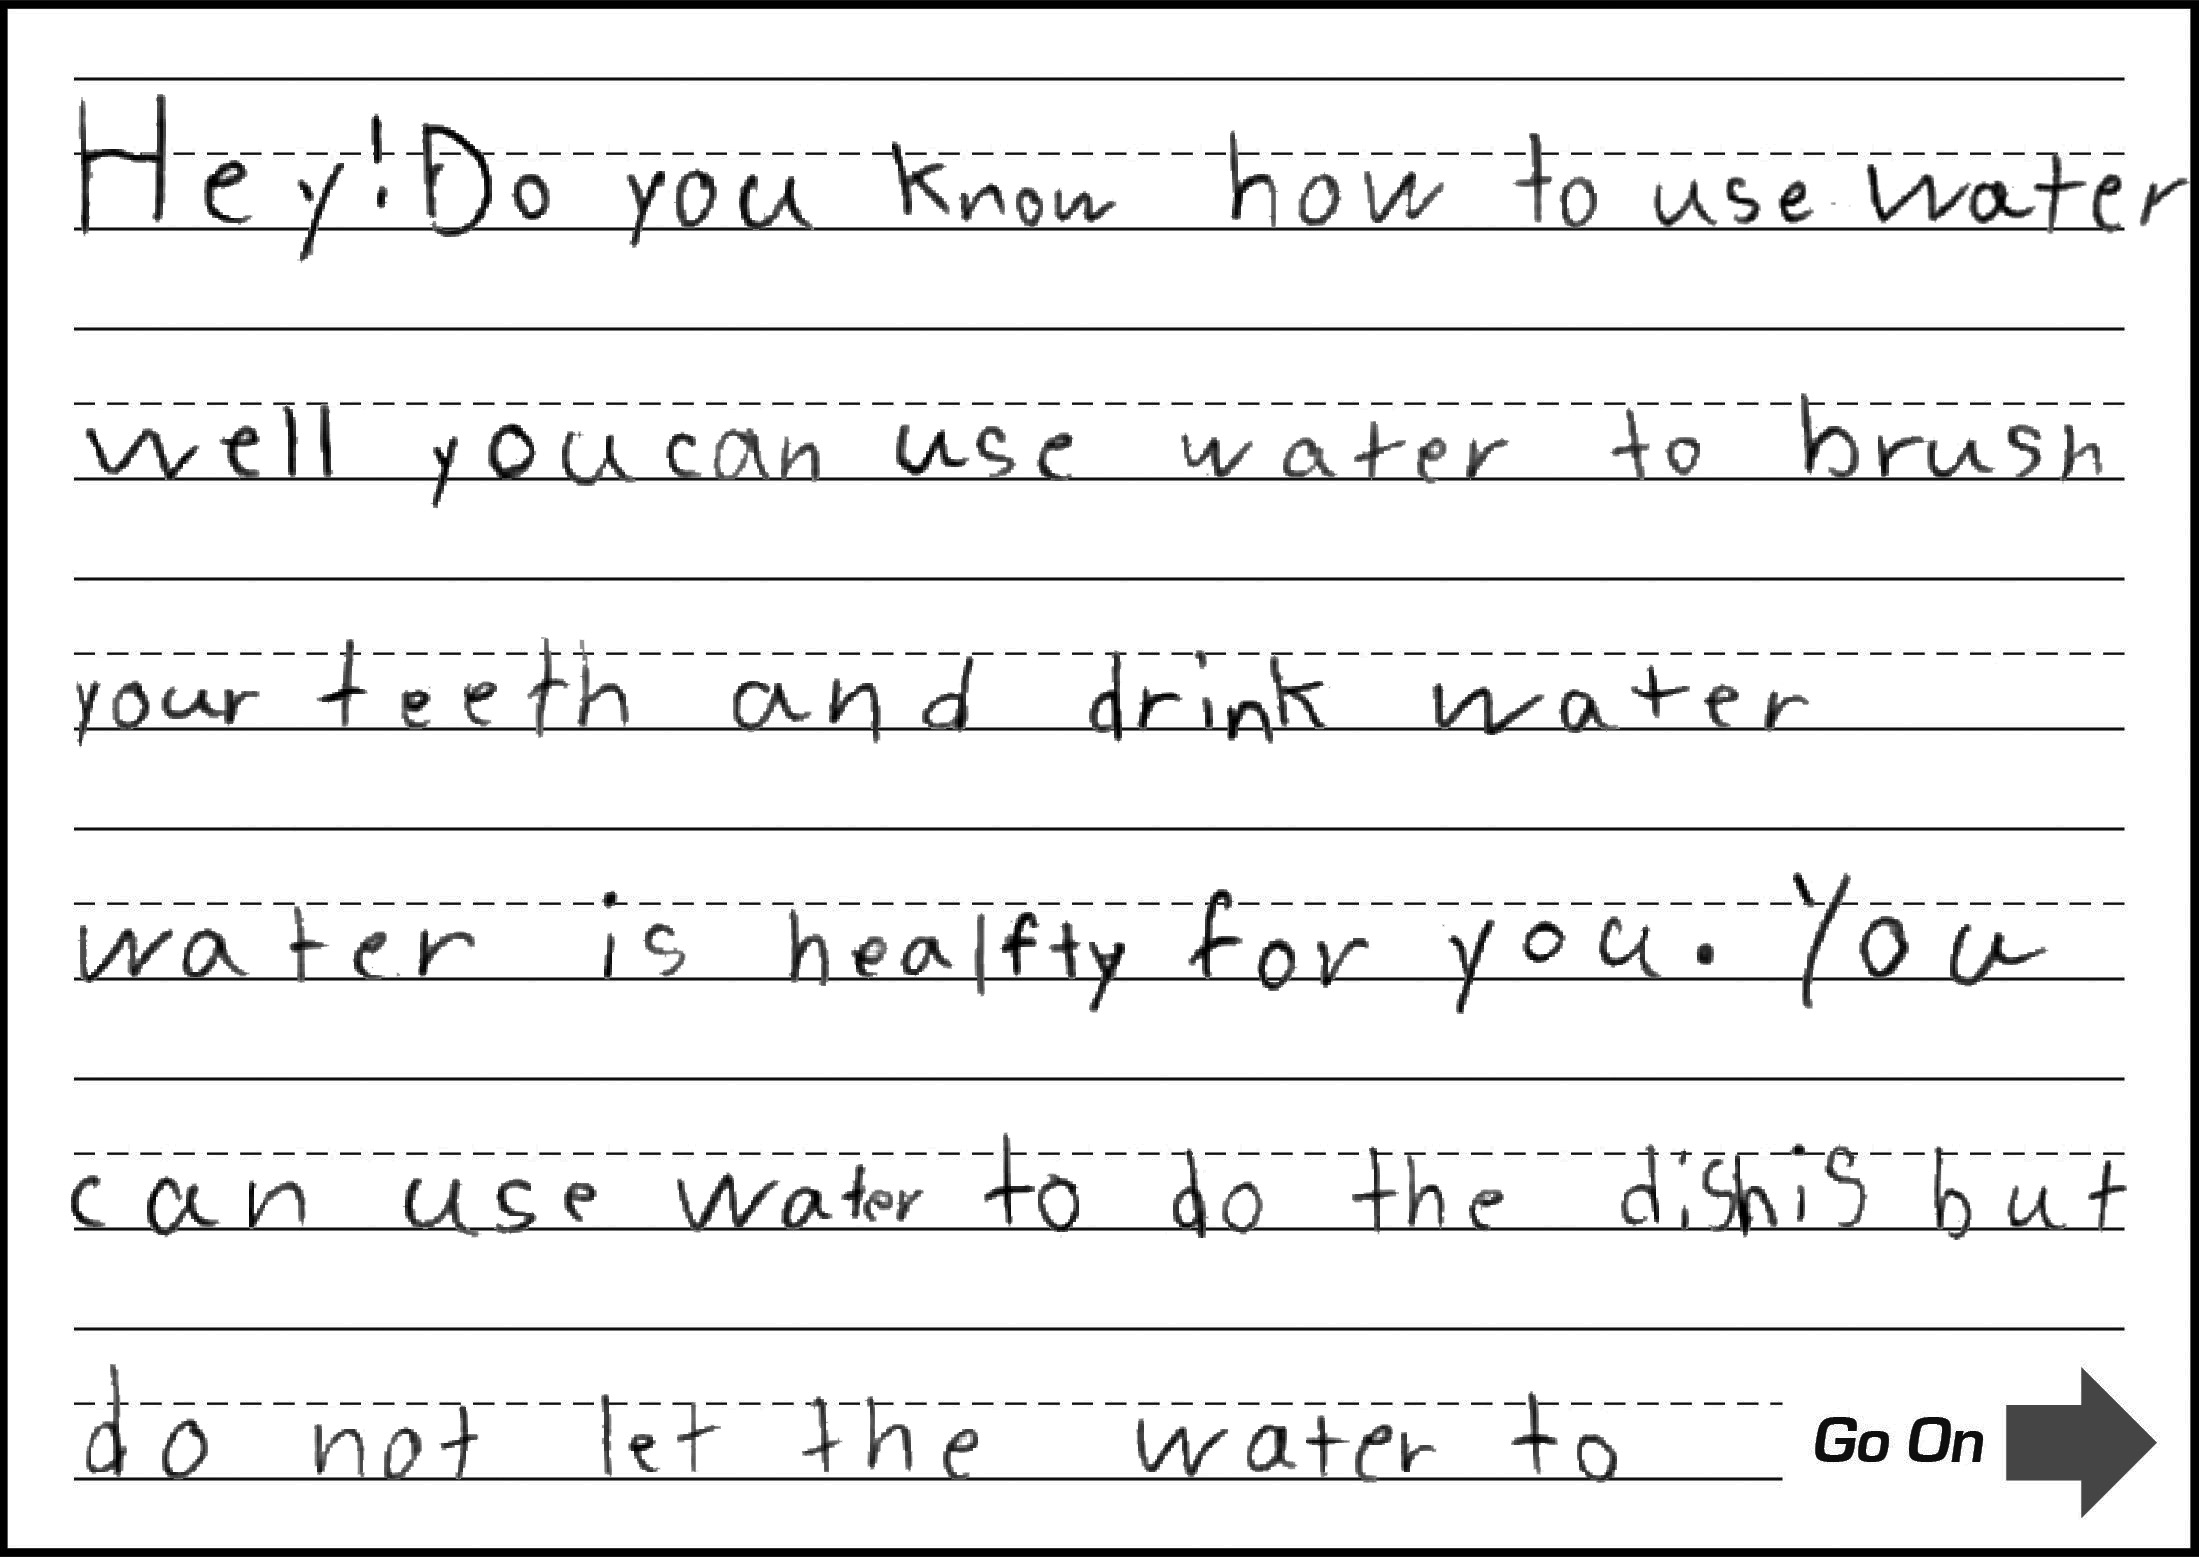 Hey! Do you know how to use water
well you can use water to brush
your teeth and drink water
water is healfty for you. You
can use water to do the dishis but
do not let the water to
Go On